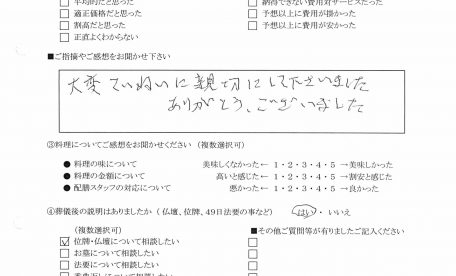 □平均的だと思った □納得できない費用対サービスだった
□適正価格だと思った □予想以上に費用が掛かった
□割高だと思った □予想以上に費用が安かった
□正直よくわからない
■ご指摘やご感想をお聞かせ下さい
大変ていねいに親切にして下さいました
ありがとう、ございました
③料理についてご感想をお聞かせください（複数選択可）
●料理の味について 美味しくなかった← 1・2・3・4・5 →美味しかった
●料理の金額について 高いと感じた← 1・2・3・4・5 →割安と感じた
●配膳スタッフの対応について 悪かった← 1・2・3・4・5 →良かった
④葬儀後の説明はありましたか（仏壇、位牌、49日法要の事など） はい・ いいえ
（複数選択可） ■その他ご質問等が有りましたご記入ください
☑位牌・仏壇について相談したい □
□お墓について相談したい □
□法要について相談したい □